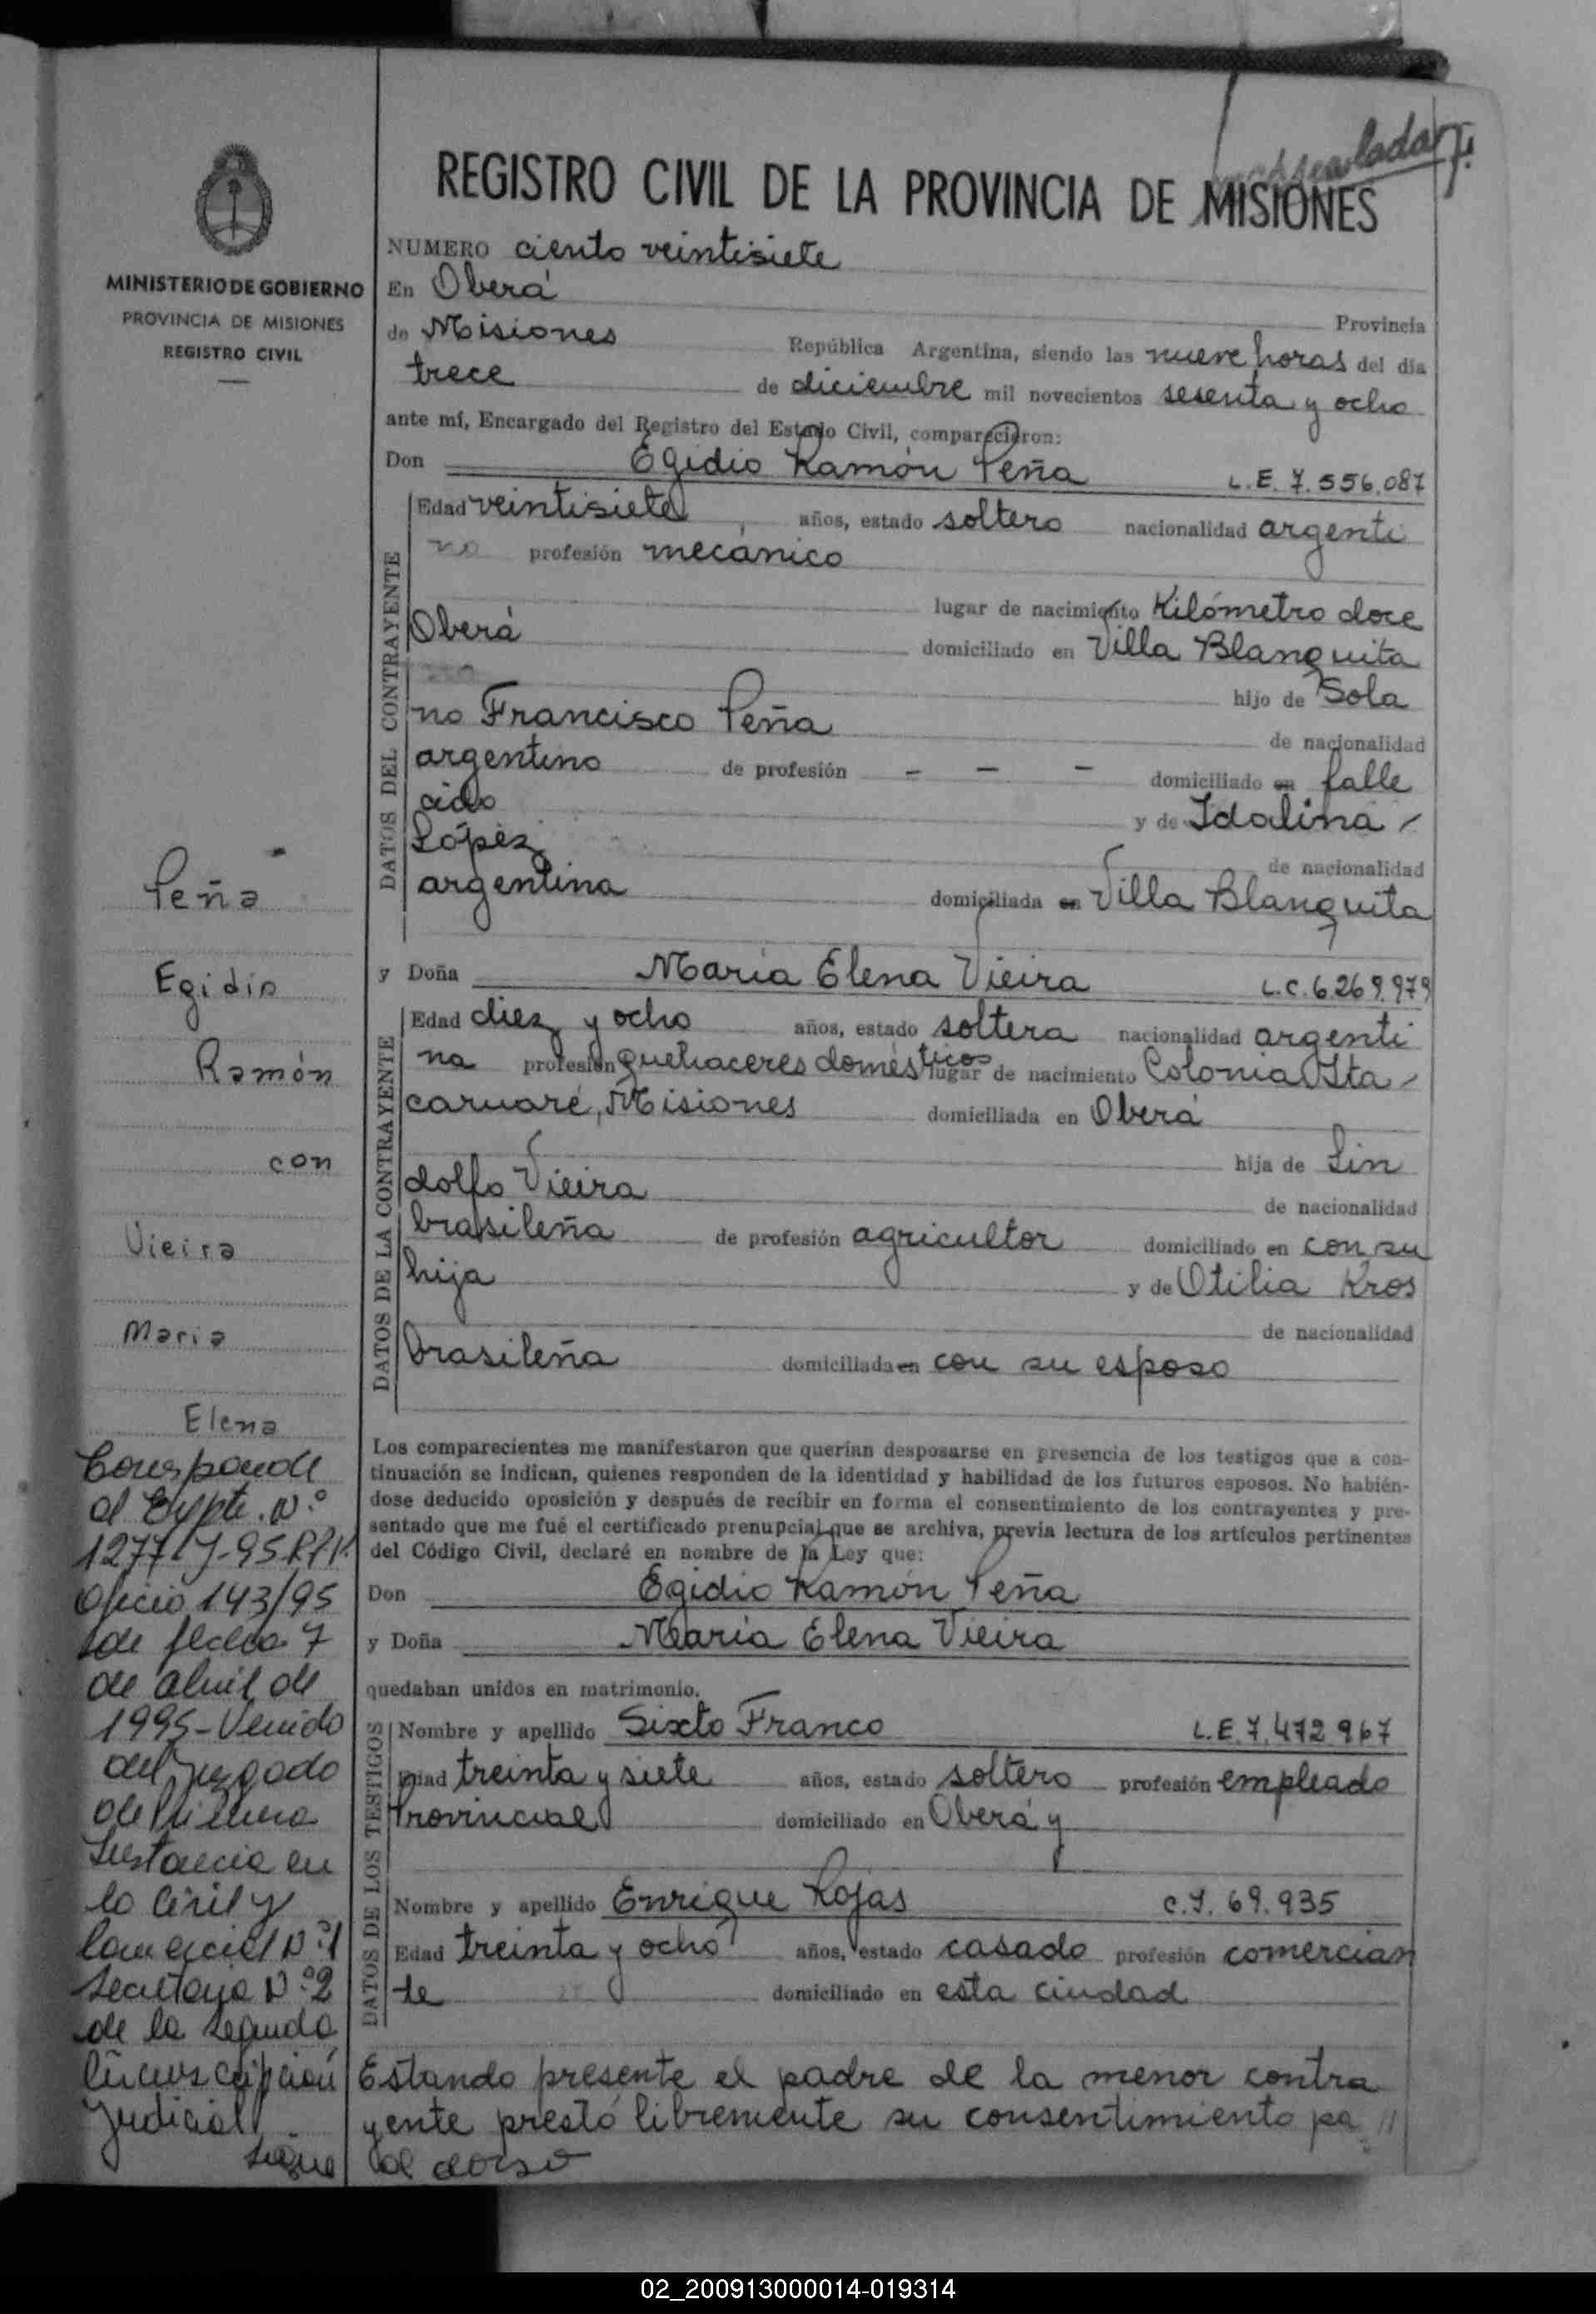 REGISTRO CIVIL DE LA PROVINCIA DE MISIONES
MINISTERIO DE GOBIERNO
PROVINCIA DE MISIONES
REGISTRO CIVIL
NUMERO ciento veintisiete
En Oberá
Provincia
de Misiones República Argentina, siendo las nueve horas del día
trece de diciembre mil novecientos sesenta y ocho
ante mí, Encargado del Registro del Estado Civil, comparecieron:
Don Egidio Ramón Peña L.E. 7.556.087
DATOS DEL CONTRAYENTE
Edad veintisiete años, estado soltero nacionalidad argenti
no profesión mecánico
lugar de nacimiento Kilómetro doce
Oberá domiciliado en Villa Blanquita
hijo de Sola
no Francisco Peña
de nacionalidad
argentino de profesión - - - domiciliado en falle
cido
y de Idalina
López
de nacionalidad
argentina domiciliada en Villa Blanquita
y Doña María Elena Vieira L.C. 6.269.979
DATOS DE LA CONTRAYENTE
Edad diez y ocho años, estado soltera nacionalidad argenti
na profesión quehaceres domésticos lugar de nacimiento Colonia Ita
caruaré, Misiones domiciliada en Oberá
hija de Lin
dolfo Vieira
de nacionalidad
brasileña de profesión agricultor domiciliado en con su
hija
y de Otilia Kros
de nacionalidad
brasileña domiciliada en con su esposo
Los comparecientes me manifestaron que querían desposarse en presencia de los testigos que a con-
tinuación se indican, quienes responden de la identidad y habilidad de los futuros esposos. No habién-
dose deducido oposición y después de recibir en forma el consentimiento de los contrayentes y pre-
sentado que me fué el certificado prenupcial que se archiva, previa lectura de los artículos pertinentes
del Código Civil, declaré en nombre de la Ley que:
Don Egidio Ramón Peña
y Doña María Elena Vieira
quedaban unidos en matrimonio.
DATOS DE LOS TESTIGOS
Nombre y apellido Sixto Franco L.E. 7.472.967
Edad treinta y siete años, estado soltero profesión empleado
Provincial domiciliado en Oberá y
Nombre y apellido Enrique Rojas C.I. 69.935
Edad treinta y ocho años, estado casado profesión comercian
te domiciliado en esta ciudad
Estando presente el padre de la menor contra
yente prestó libremente su consentimiento pa //
Peña
Egidio
Ramón
con
Vieira
Maria
Elena
Corresponde
al Expte. N.º
Oficio 143/95
de fecha 7
de abril de
1995 - Venido
del Juzgado
de Primera
Instancia en
lo Civil y
Comercial Nº 1
Secretaría N.º 2
de la segunda
Circunscripción
Judicial
sigue al dorso
02_200913000014-019314